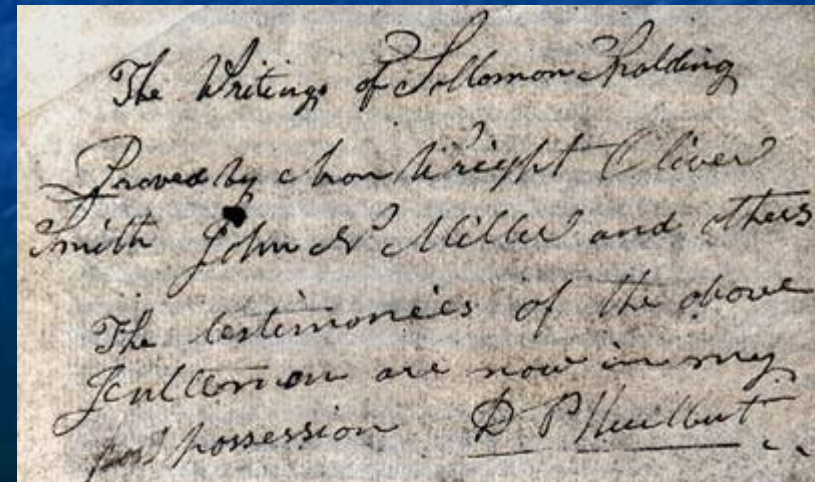 The Writings of Sollomon Spalding
Proved by Aron Wright Oliver
Smith John N Miller and others
The testimonies of the above
Jentlemen are now in my
possession D P Hurlbut